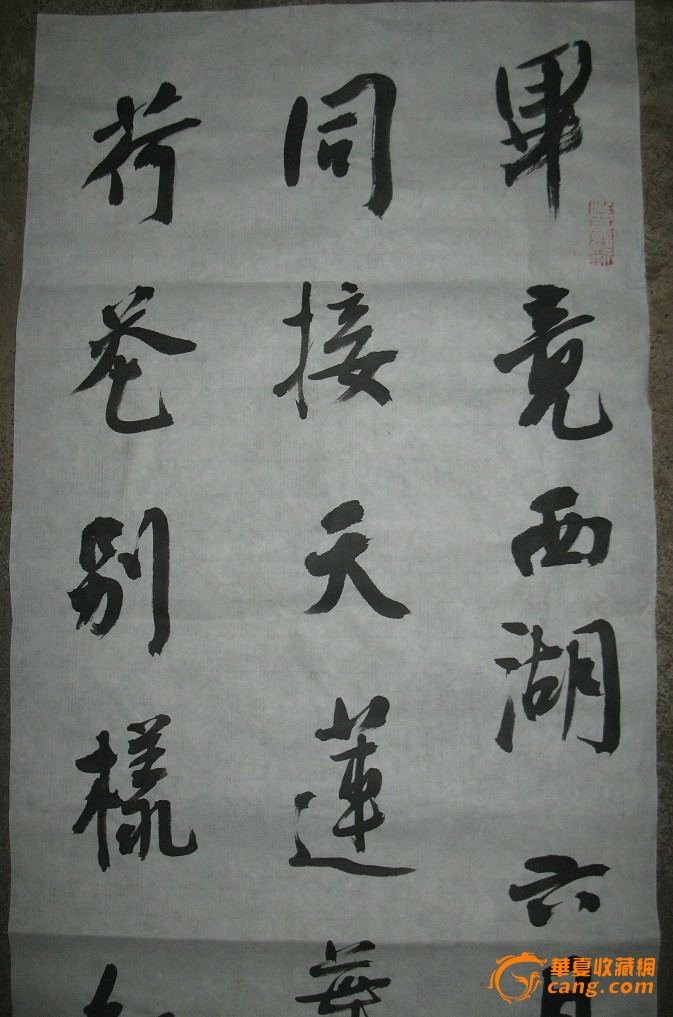 畢竟西湖六月
同接天蓮葉
荷花別樣
華夏收藏網
cang.com